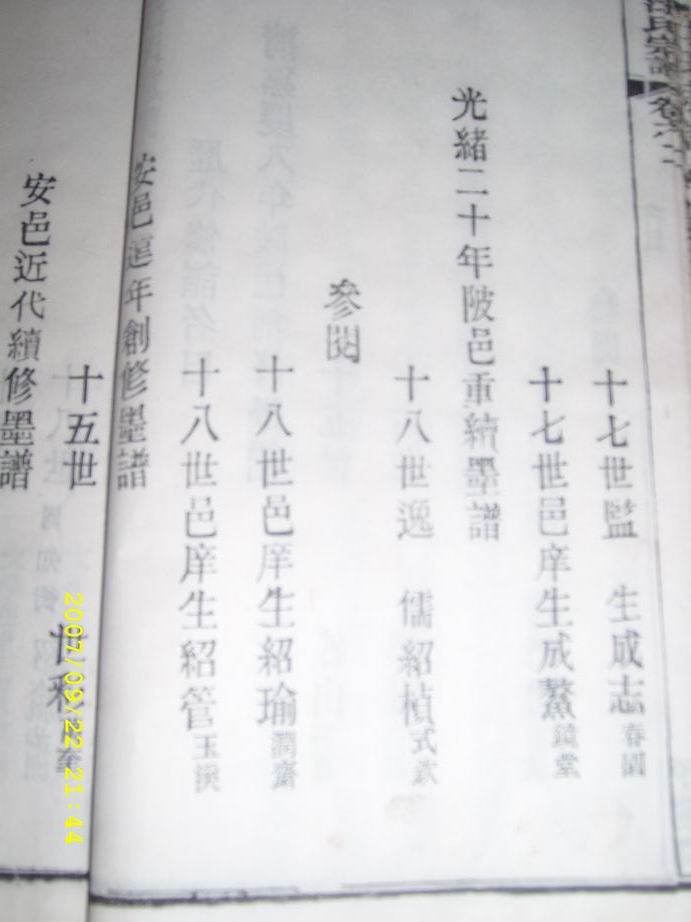 氏宗譜 卷六
十七世監 生成志春園
十七世邑庠生成鰲鏡堂
光緒二十年陂邑重續墨譜
十八世逸 儒紹楨式欽
參閱
十八世邑庠生紹瑜潤齋
十八世邑庠生紹管玉溪
安邑遠年創修墨譜
十五世 世彩奎
安邑近代續修墨譜
2007/09/22 21:44